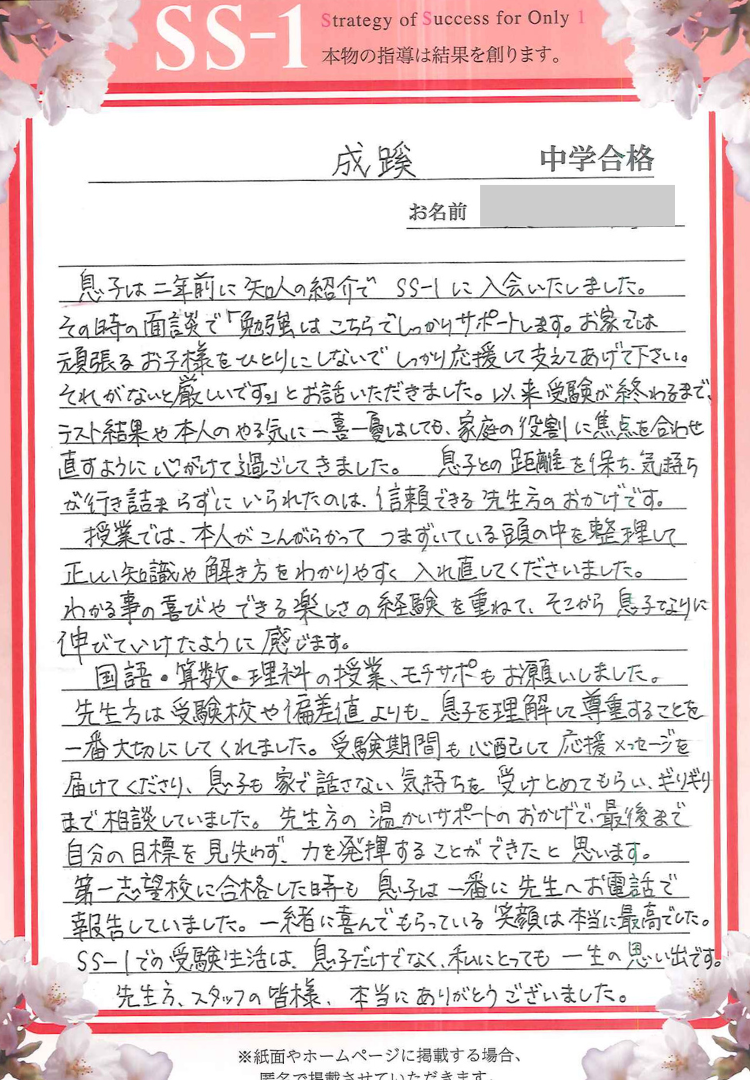 SS-1
Strategy of Success for Only 1
本物の指導は結果を創ります。
成蹊 中学合格
お名前
息子は二年前に知人の紹介で SS-1に入会いたしました。
その時の面談で「勉強はこちらでしっかりサポートします。お家では
頑張るお子様をひとりにしないでしっかり応援して支えてあげて下さい。
それがないと厳しいです。」とお話いただきました。以来受験が終わるまで、
テスト結果や本人のやる気に一喜一憂はしても、家庭の役割に焦点を合わせ
直すように心がけて過ごしてきました。 息子との距離を保ち、気持ち
が行き詰まらずにいられたのは、信頼できる先生方のおかげです。
授業では、本人がこんがらかってつまずいている頭の中を整理して
正しい知識や解き方をわかりやすく入れ直してくださいました。
わかる事の喜びやできる楽しさの経験を重ねて、そこから息子なりに
伸びていけたように感じます。
国語・算数・理科の授業、モチサポもお願いしました。
先生方は受験校や偏差値よりも、息子を理解して尊重することを
一番大切にしてくれました。受験期間も心配して応援メッセージを
届けてくださり、息子も家で話さない気持ちを受けとめてもらい、ぎりぎり
まで相談していました。先生方の温かいサポートのおかげで、最後まで
自分の目標を見失わず、力を発揮することができたと思います。
第一志望校に合格した時も息子は一番に先生へお電話で
報告していました。一緒に喜んでもらっている笑顔は本当に最高でした。
SS-1での受験生活は、息子だけでなく、私にとっても一生の思い出です。
先生方、スタッフの皆様、本当にありがとうございました。
※紙面やホームページに掲載する場合、
匿名で掲載させていただきます。